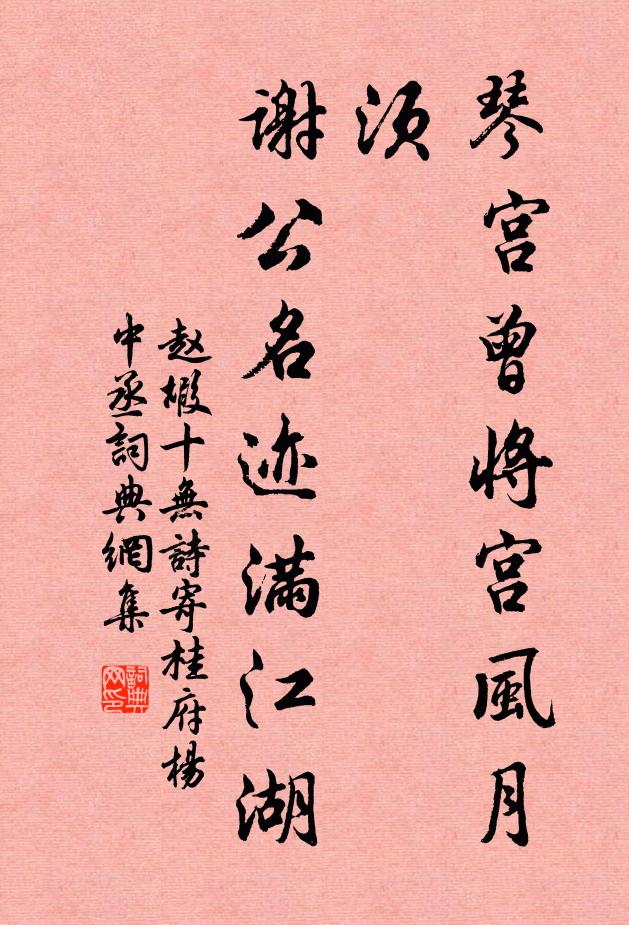 琴宫曾将宫風月
须
谢公名迹满江湖
赵嘏十無詩寄桂府楊
中丞詞典網集
詞典网印